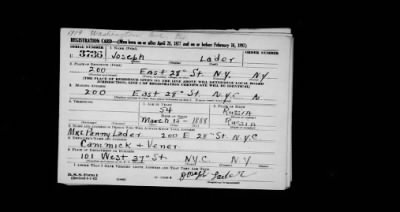 REGISTRATION CARD—(Men born on or after April 28, 1877 and on or before February 16, 1897)
SERIAL NUMBER 1. NAME (Print) ORDER NUMBER
U 3735 Joseph Lader
2. PLACE OF RESIDENCE (Print)
200 East 28th St. N.Y. NY
[THE PLACE OF RESIDENCE GIVEN ON THE LINE ABOVE WILL DETERMINE LOCAL BOARD
JURISDICTION; LINE 2 OF REGISTRATION CERTIFICATE WILL BE IDENTICAL]
3. MAILING ADDRESS
200 East 28th St. N.Y.C N
4. TELEPHONE 5. AGE IN YEARS 6. PLACE OF BIRTH
54 Russia
DATE OF BIRTH
March 12 - 1888 Russia
7. NAME AND ADDRESS OF PERSON WHO WILL ALWAYS KNOW YOUR ADDRESS
Mrs Penny Lader. 200 E 28th St. N.Y.C
8. EMPLOYER'S NAME AND ADDRESS
Cammick + Vener
9. PLACE OF EMPLOYMENT OR BUSINESS
101 West 27th St. N.Y.C. N.Y
I AFFIRM THAT I HAVE VERIFIED ABOVE ANSWERS AND THAT THEY ARE TRUE.
D. S. S. Form 1
Joseph Lader